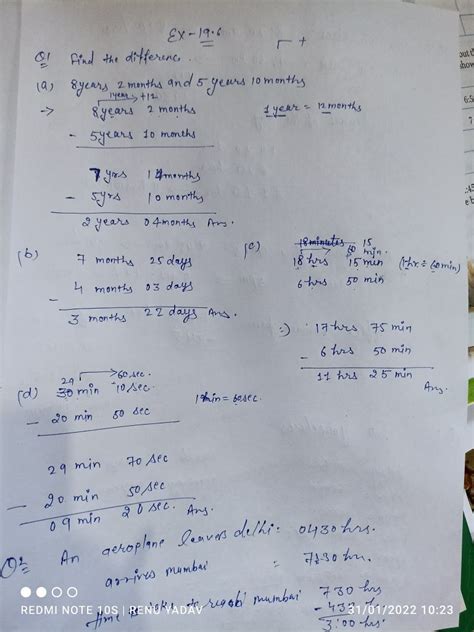 Ex-19.6
Q1 Find the difference.
(a) 8 years 2 months and 5 years 10 months
1 year → +12
→ 8 years 2 months 1 year = 12 months
- 5 years 10 months
7 yrs 14 months
- 5 yrs 10 months
2 years 04 months Ans.
(b) 7 months 25 days
- 4 months 03 days
3 months 22 days Ans.
(c) 18 minutes 15
60 min.
18 hrs 15 min (1 hr = 60 min)
6 hrs 50 min
:) 17 hrs 75 min
- 6 hrs 50 min
11 hrs 25 min
Ans.
29 → 60 sec.
(d) 30 min 10 sec. 1 min = 60 sec.
- 20 min 50 sec
29 min 70 sec
- 20 min 50 sec
09 min 20 sec. Ans.
Q2 An aeroplane leaves delhi = 0430 hrs.
arrives mumbai = 7:30 hr.
time to reach mumbai 730 hrs
- 430 hr
3:00 hrs
REDMI NOTE 10S | RENU YADAV
31/01/2022 10:23